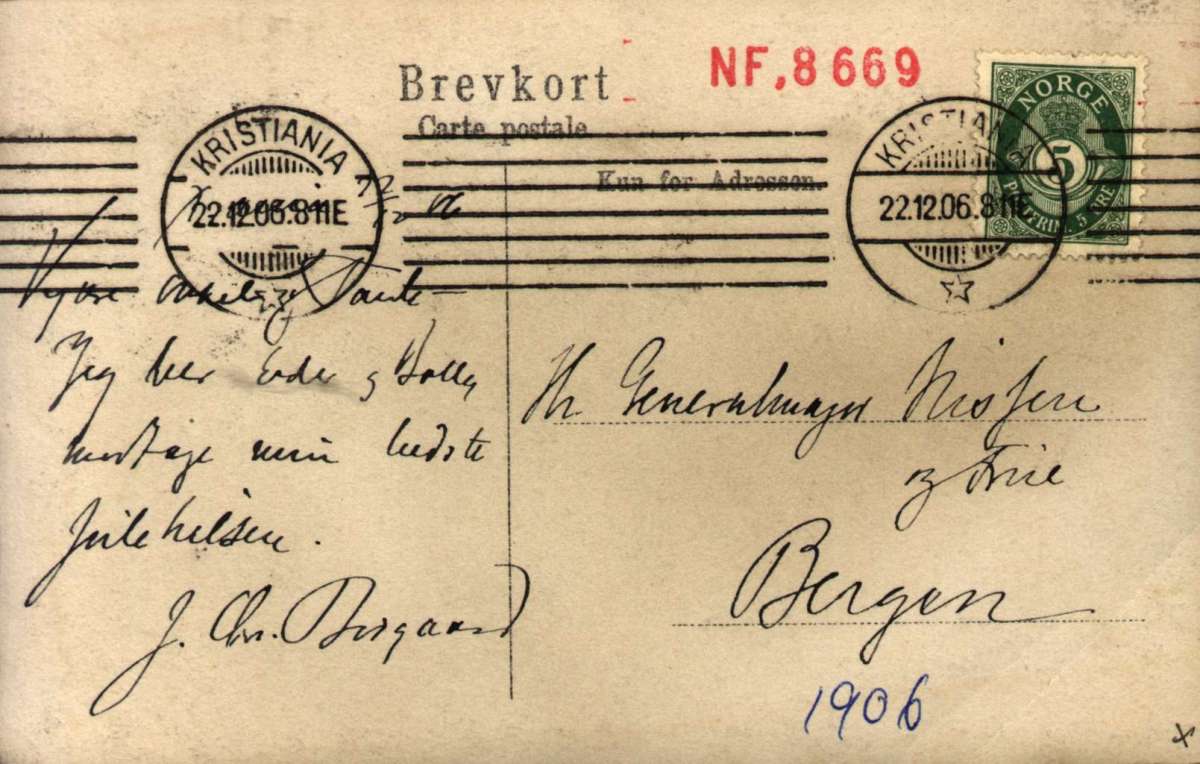 Brevkort
Carte postale
Kun for Adressen.
NF,8 669
KRISTIANIA
22.12.06.8 11E
KRISTIANIA
22.12.06.8 11E
NORGE
5
POSTFRIM. 5 ØRE
22/12 06
Kjære onkel og Tante
Jeg ber Eder og Bolly
modtage min bedste
Julehilsen.
J. Chr.
Hr Generalmajor Nissen
og Frue
Bergen
1906
x